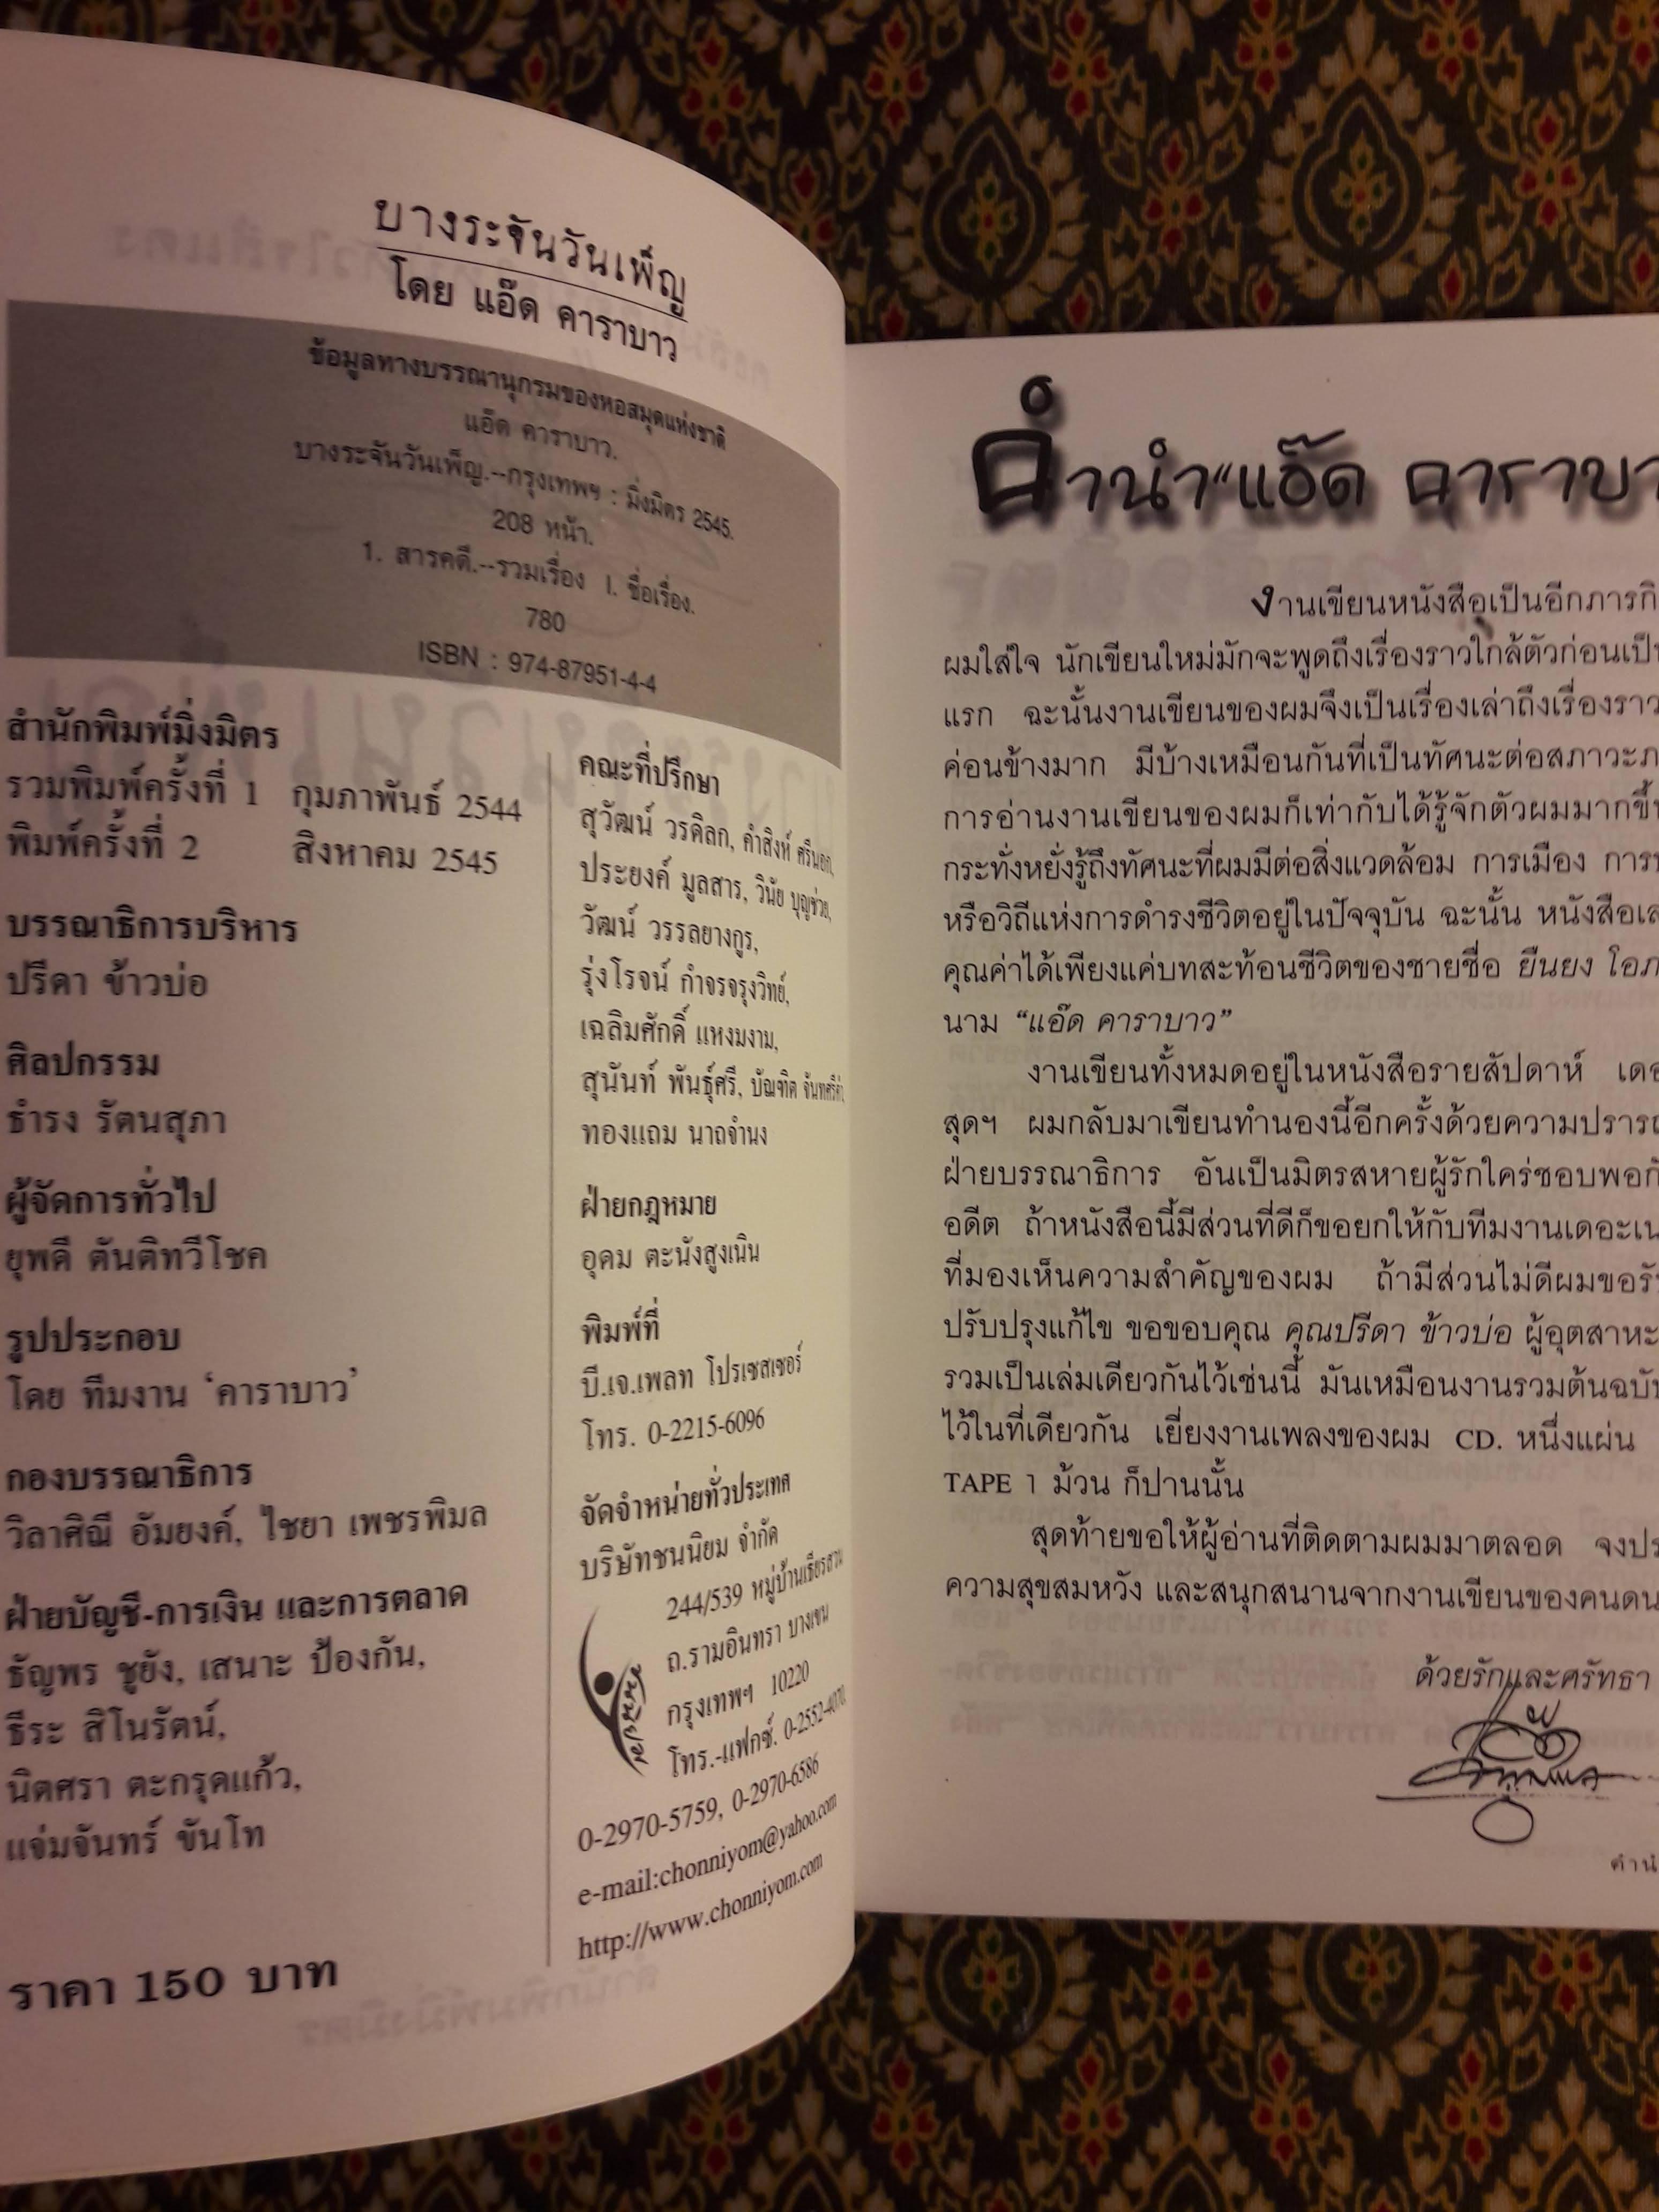 บางระจันวันเพ็ญ
โดย แอ๊ด คาราบาว
ข้อมูลทางบรรณานุกรมของหอสมุดแห่งชาติ
แอ๊ด คาราบาว.
บางระจันวันเพ็ญ.--กรุงเทพฯ : มิ่งมิตร 2545.
208 หน้า.
1. สารคดี.--รวมเรื่อง I. ชื่อเรื่อง.
780
ISBN : 974-87951-4-4
สำนักพิมพ์มิ่งมิตร
รวมพิมพ์ครั้งที่ 1 กุมภาพันธ์ 2544
พิมพ์ครั้งที่ 2 สิงหาคม 2545
บรรณาธิการบริหาร
ปรีดา ข้าวบ่อ
ศิลปกรรม
ธำรง รัตนสุภา
ผู้จัดการทั่วไป
ยุพดี ตันติทวีโชค
รูปประกอบ
โดย ทีมงาน ‘คาราบาว’
กองบรรณาธิการ
วิลาศิณี อัมยงค์, ไชยา เพชรพิมล
ฝ่ายบัญชี-การเงิน และการตลาด
ธัญพร ชูยัง, เสนาะ ป้องกัน,
ธีระ สิโนรัตน์,
นิตศรา ตะกรุดแก้ว,
แจ่มจันทร์ ขันโท
ราคา 150 บาท
คณะที่ปรึกษา
สุวัฒน์ วรดิลก, คำสิงห์ ศรีนอก,
ประยงค์ มูลสาร, วินัย บุญช่วย,
วัฒน์ วรรลยางกูร,
รุ่งโรจน์ กำจรจรุงวิทย์,
เฉลิมศักดิ์ แหงมงาม,
สุนันท์ พันธุ์ศรี, บัณฑิต จันทศรีคำ,
ทองแถม นาถจำนง
ฝ่ายกฎหมาย
อุดม ตะนังสูงเนิน
พิมพ์ที่
บี.เจ.เพลท โปรเซสเซอร์
โทร. 0-2215-6096
จัดจำหน่ายทั่วประเทศ
บริษัทชนนิยม จำกัด
244/539 หมู่บ้านเธียรสวน
ถ.รามอินทรา บางเขน
กรุงเทพฯ 10220
โทร.-แฟกซ์. 0-2552-4070,
0-2970-5759, 0-2970-6586
e-mail:chonniyom@yahoo.com
http://www.chonniyom.com
ชนนิยม
คำนำ“แอ๊ด คาราบา
งานเขียนหนังสือเป็นอีกภารกิ
ผมใส่ใจ นักเขียนใหม่มักจะพูดถึงเรื่องราวใกล้ตัวก่อนเป็น
แรก ฉะนั้นงานเขียนของผมจึงเป็นเรื่องเล่าถึงเรื่องราว
ค่อนข้างมาก มีบ้างเหมือนกันที่เป็นทัศนะต่อสภาวะภ
การอ่านงานเขียนของผมก็เท่ากับได้รู้จักตัวผมมากขึ้น
กระทั่งหยั่งรู้ถึงทัศนะที่ผมมีต่อสิ่งแวดล้อม การเมือง การ
หรือวิถีแห่งการดำรงชีวิตอยู่ในปัจจุบัน ฉะนั้น หนังสือเล
คุณค่าได้เพียงแค่บทสะท้อนชีวิตของชายชื่อ ยืนยง โอภ
นาม “แอ๊ด คาราบาว”
งานเขียนทั้งหมดอยู่ในหนังสือรายสัปดาห์ เดอ
สุดฯ ผมกลับมาเขียนทำนองนี้อีกครั้งด้วยความปรารถ
ฝ่ายบรรณาธิการ อันเป็นมิตรสหายผู้รักใคร่ชอบพอกั
อดีต ถ้าหนังสือนี้มีส่วนที่ดีก็ขอยกให้กับทีมงานเดอะเน
ที่มองเห็นความสำคัญของผม ถ้ามีส่วนไม่ดีผมขอรั
ปรับปรุงแก้ไข ขอขอบคุณ คุณปรีดา ข้าวบ่อ ผู้อุตสาหะ
รวมเป็นเล่มเดียวกันไว้เช่นนี้ มันเหมือนงานรวมต้นฉบั
ไว้ในที่เดียวกัน เยี่ยงงานเพลงของผม CD. หนึ่งแผ่น
TAPE 1 ม้วน ก็ปานนั้น
สุดท้ายขอให้ผู้อ่านที่ติดตามผมมาตลอด จงปร
ความสุขสมหวัง และสนุกสนานจากงานเขียนของคนดน
ด้วยรักและศรัทธา
คำนำ